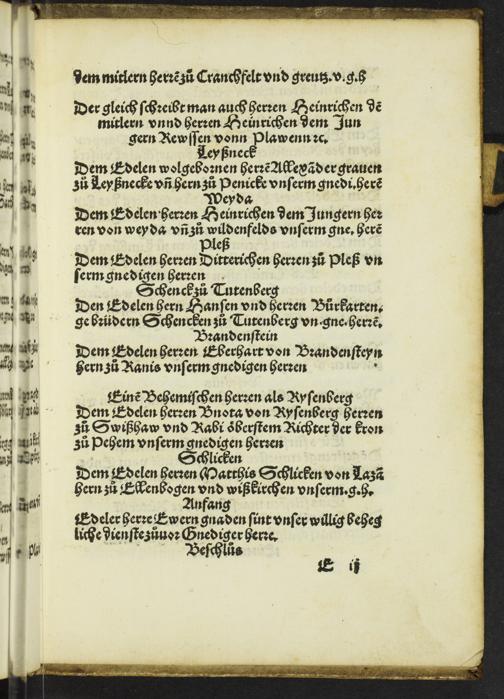 dem mitlern herrē zů Cranchfelt vnd greutz.v.g.h
Der gleich schreibt man auch herren Heinrichen dē
mitlern vnnd herren Heinrichen dem Jun
gern Rewssen vonn Plawenn ꝛc.
Leyßneck
Dem Edelen wolgebornen herrē Allexāder grauen
zů Leyßnecke vñ hern zů Penicke vnserm gnedi.herē
Weyda
Dem Edelen herren Heinrichen dem Jungern her
ren von weyda vñ zů wildenfelds vnserm gne. herē
Pleß
Dem Edelen herren Ditterichen herren zů Pleß vn
serm gnedigen herren
Schenck zů Tutenberg
Den Edelen hern Hansen vnd herren Bürkarten.
gebrüdern Schencken zů Tutenberg vn.gne.herrē.
Brandenstein
Dem Edelen herren Eberhart von Brandensteyn
hern zů Ranis vnserm gnedigen herren
Einē Behemischen herren als Rysenberg
Dem Edelen herren Bnota von Rysenberg herren
zů Swißhaw vnd Rabi öberstem Richter der kron
zů Pehem vnserm gnedigen herren
Schlicken
Dem Edelen herren Matthis Schlicken von Lazā
hern zů Ellenbogen vnd wißkirchen vnserm.g.h.
Anfang
Edeler herre Ewern gnaden sint vnser willig beheg
liche dienste zůuor Gnediger herre.
Beschlůs
E iij